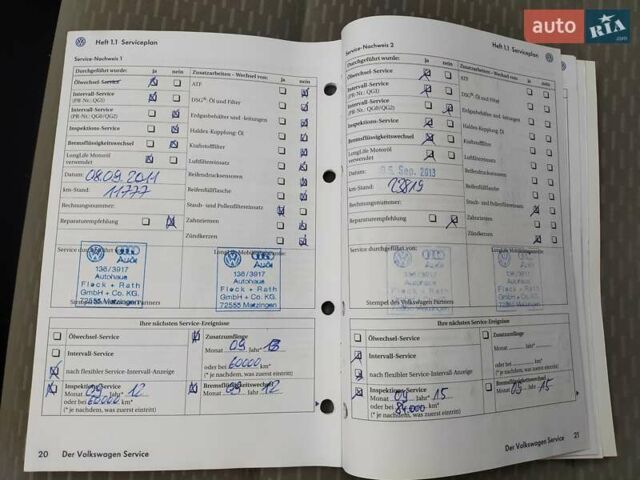 auto RIA .com
Heft 1.1 Serviceplan
Service-Nachweis 1
Durchgeführt wurde: ja nein
Ölwechsel-Service
Intervall-Service
(PR-Nr.: QG1)
Intervall-Service
(PR-Nr.: QG0/QG2)
Inspektions-Service
Bremsflüssigkeitswechsel
LongLife Motoröl
verwendet
Datum: 08.09.2011
km-Stand: 11777
Rechnungsnummer:
Reparaturempfehlung
Zusatzarbeiten - Wechsel von: ja nein
ATF
DSG®- Öl und Filter
Erdgasbehälter und -leitungen
Haldex-Kupplung: Öl
Kraftstofffilter
Luftfiltereinsatz
Reifendrucksensoren
Reifenfüllflasche
Staub- und Pollenfiltereinsatz
Zahnriemen
Zündkerzen
Service durchgeführt von:
Audi
136/3917
Autohaus
Fleck + Rath
GmbH + Co. KG.
72555 Metzingen
Stempel des Volkswagen Partners
Audi
136/3917
Autohaus
Fleck + Rath
GmbH + Co. KG.
72555 Metzingen
Ihre nächsten Service-Ereignisse
Ölwechsel-Service
Intervall-Service
nach flexibler Service-Intervall-Anzeige
Inspektions-Service
Monat 09 Jahr* 12
oder bei 60000 km*
(* je nachdem, was zuerst eintritt)
Zusatzumfänge
Monat 09 Jahr* 13
oder bei 60000 km*
(* je nachdem, was zuerst eintritt)
Bremsflüssigkeitswechsel
Monat 09 Jahr 12
20 Der Volkswagen Service
Service-Nachweis 2
Heft 1.1 Serviceplan
Durchgeführt wurde: ja nein
Ölwechsel-Service
Intervall-Service
(PR-Nr.: QG1)
Intervall-Service
(PR-Nr.: QG0/QG2)
Inspektions-Service
Bremsflüssigkeitswechsel
LongLife Motoröl
verwendet
Datum: Sep. 2013
km-Stand: 23819
Rechnungsnummer:
Reparaturempfehlung
Zusatzarbeiten - Wechsel von: ja nein
ATF
DSG®- Öl und Filter
Erdgasbehälter und -leitungen
Haldex-Kupplung: Öl
Kraftstofffilter
Luftfiltereinsatz
Reifendrucksensoren
Reifenfüllflasche
Staub- und Pollenfiltereinsatz
Zahnriemen
Zündkerzen
Service durchgeführt von:
Stempel des Volkswagen Partners
Ihre nächsten Service-Ereignisse
Ölwechsel-Service
Intervall-Service
nach flexibler Service-Intervall-Anzeige
Inspektions-Service
Monat 09 Jahr* 15
oder bei 84.000 km*
(* je nachdem, was zuerst eintritt)
Zusatzumfänge
Monat Jahr*
oder bei km*
(* je nachdem, was zuerst eintritt)
Bremsflüssigkeitswechsel
Monat 09 Jahr 15
Der Volkswagen Service 21